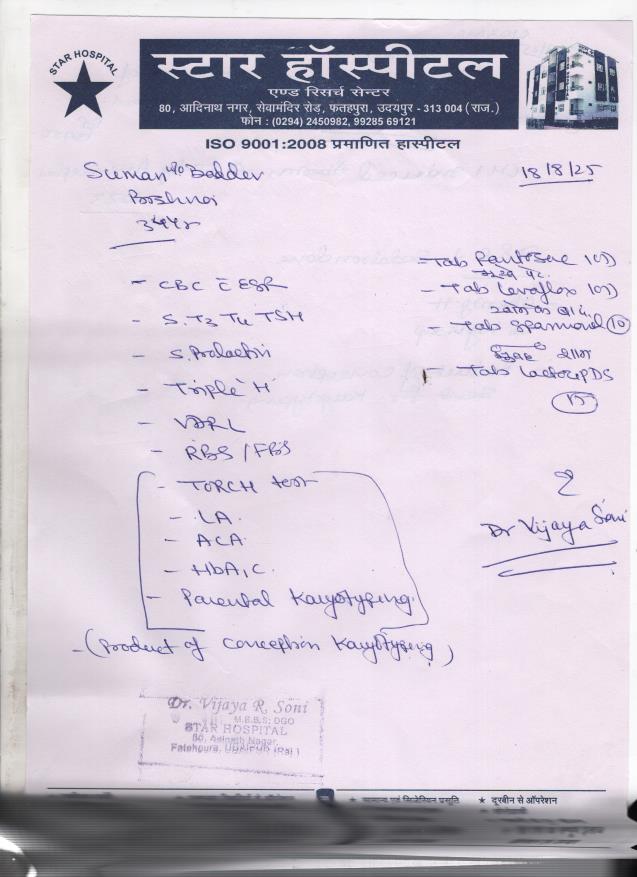 STAR HOSPITAL
स्टार हॉस्पीटल
एण्ड रिसर्च सेन्टर
80, आदिनाथ नगर, सेवामंदिर रोड, फतहपुरा, उदयपुर - 313 004 (राज.)
फोन : (0294) 2450982, 99285 69121
ISO 9001:2008 प्रमाणित हास्पीटल
18/8/25
Suman w/o Baldev
Bishnoi
- CBC C̄ ESR
- S. T3 T4 TSH
- S. Prolactin
- Triple H
- VDRL
- RBS / FBS
- TORCH test
- LA
- ACA
- HbA1C
- Parental Karyotyping
- (Product of conception Karyotyping)
- Tab Pantosec 10)
- Tab Levoflox 10)
खाने के बाद
- Tab Spasmonil (10)
सुबह शाम
- Tab
Dr Vijaya Soni
Dr. Vijaya R. Soni
M.B.B.S; DGO
STAR HOSPITAL
80, Adinath Nagar,
Fatehpura, UDAIPUR (Raj.)
★ सामान्य एवं सिजेरियन प्रसूति ★ दूरबीन से ऑपरेशन